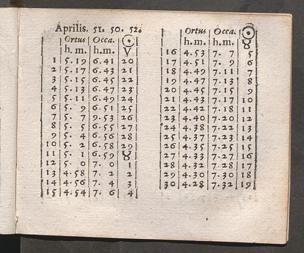 Aprilis. 51. 50. 52.
Ortus Occa. ☉
h. m. h. m. ♈
1 5. 19 6. 41 20
2 5. 17 6. 43 21
3 5. 15 6. 45 22
4 5. 13 6. 47 23
5 5. 11 6. 49 24
6 5. 9 6. 51 25
7 5. 7 6. 53 26
8 5. 5 6. 55 27
9 5. 4 6. 56 28
10 5. 2 6. 58 29
11 5. 1 6. 59 ♉
12 5. 0 7. 0 1
13 4. 58 7. 2 2
14 4. 56 7. 4 3
15 4. 54 7. 6 4
Ortus Occa. ☉
h. m. h. m. ♉
16 4. 53 7. 7 5
17 4. 51 7. 9 6
18 4. 49 7. 11 7
19 4. 47 7. 13 8
20 4. 45 7. 15 9
21 4. 43 7. 17 10
22 4. 42 7. 18 11
23 4. 40 7. 20 12
24 4. 38 7. 22 13
25 4. 37 7. 23 14
26 4. 35 7. 25 15
27 4. 33 7. 27 16
28 4. 32 7. 28 17
29 4. 30 7. 30 18
30 4. 28 7. 32 19